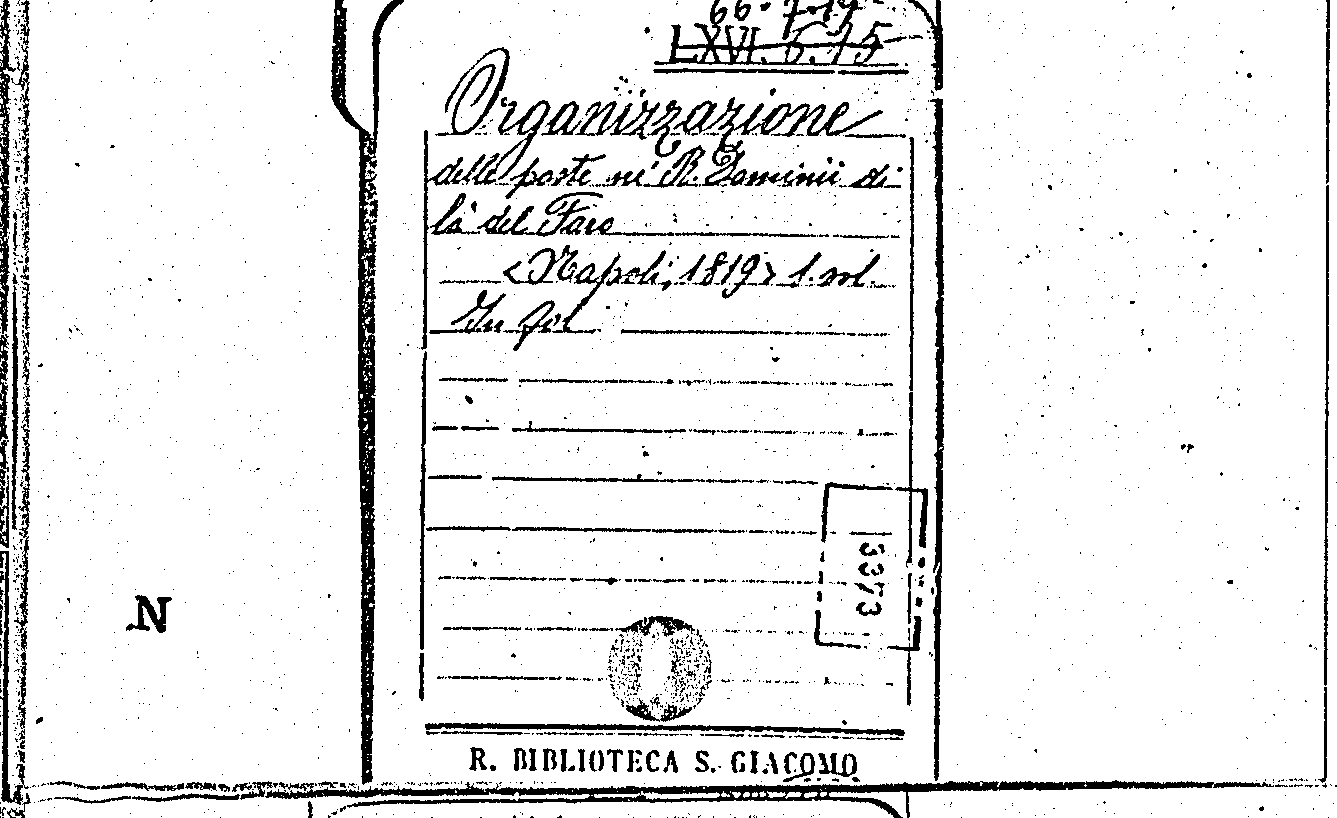 66.7.19
LXVI. 6.15
Organizzazione
delle poste ne' R. Dominii di
là del Faro
<Napoli, 1819> 1. vol.
In fol
3373
N
R. BIBLIOTECA S. GIACOMO